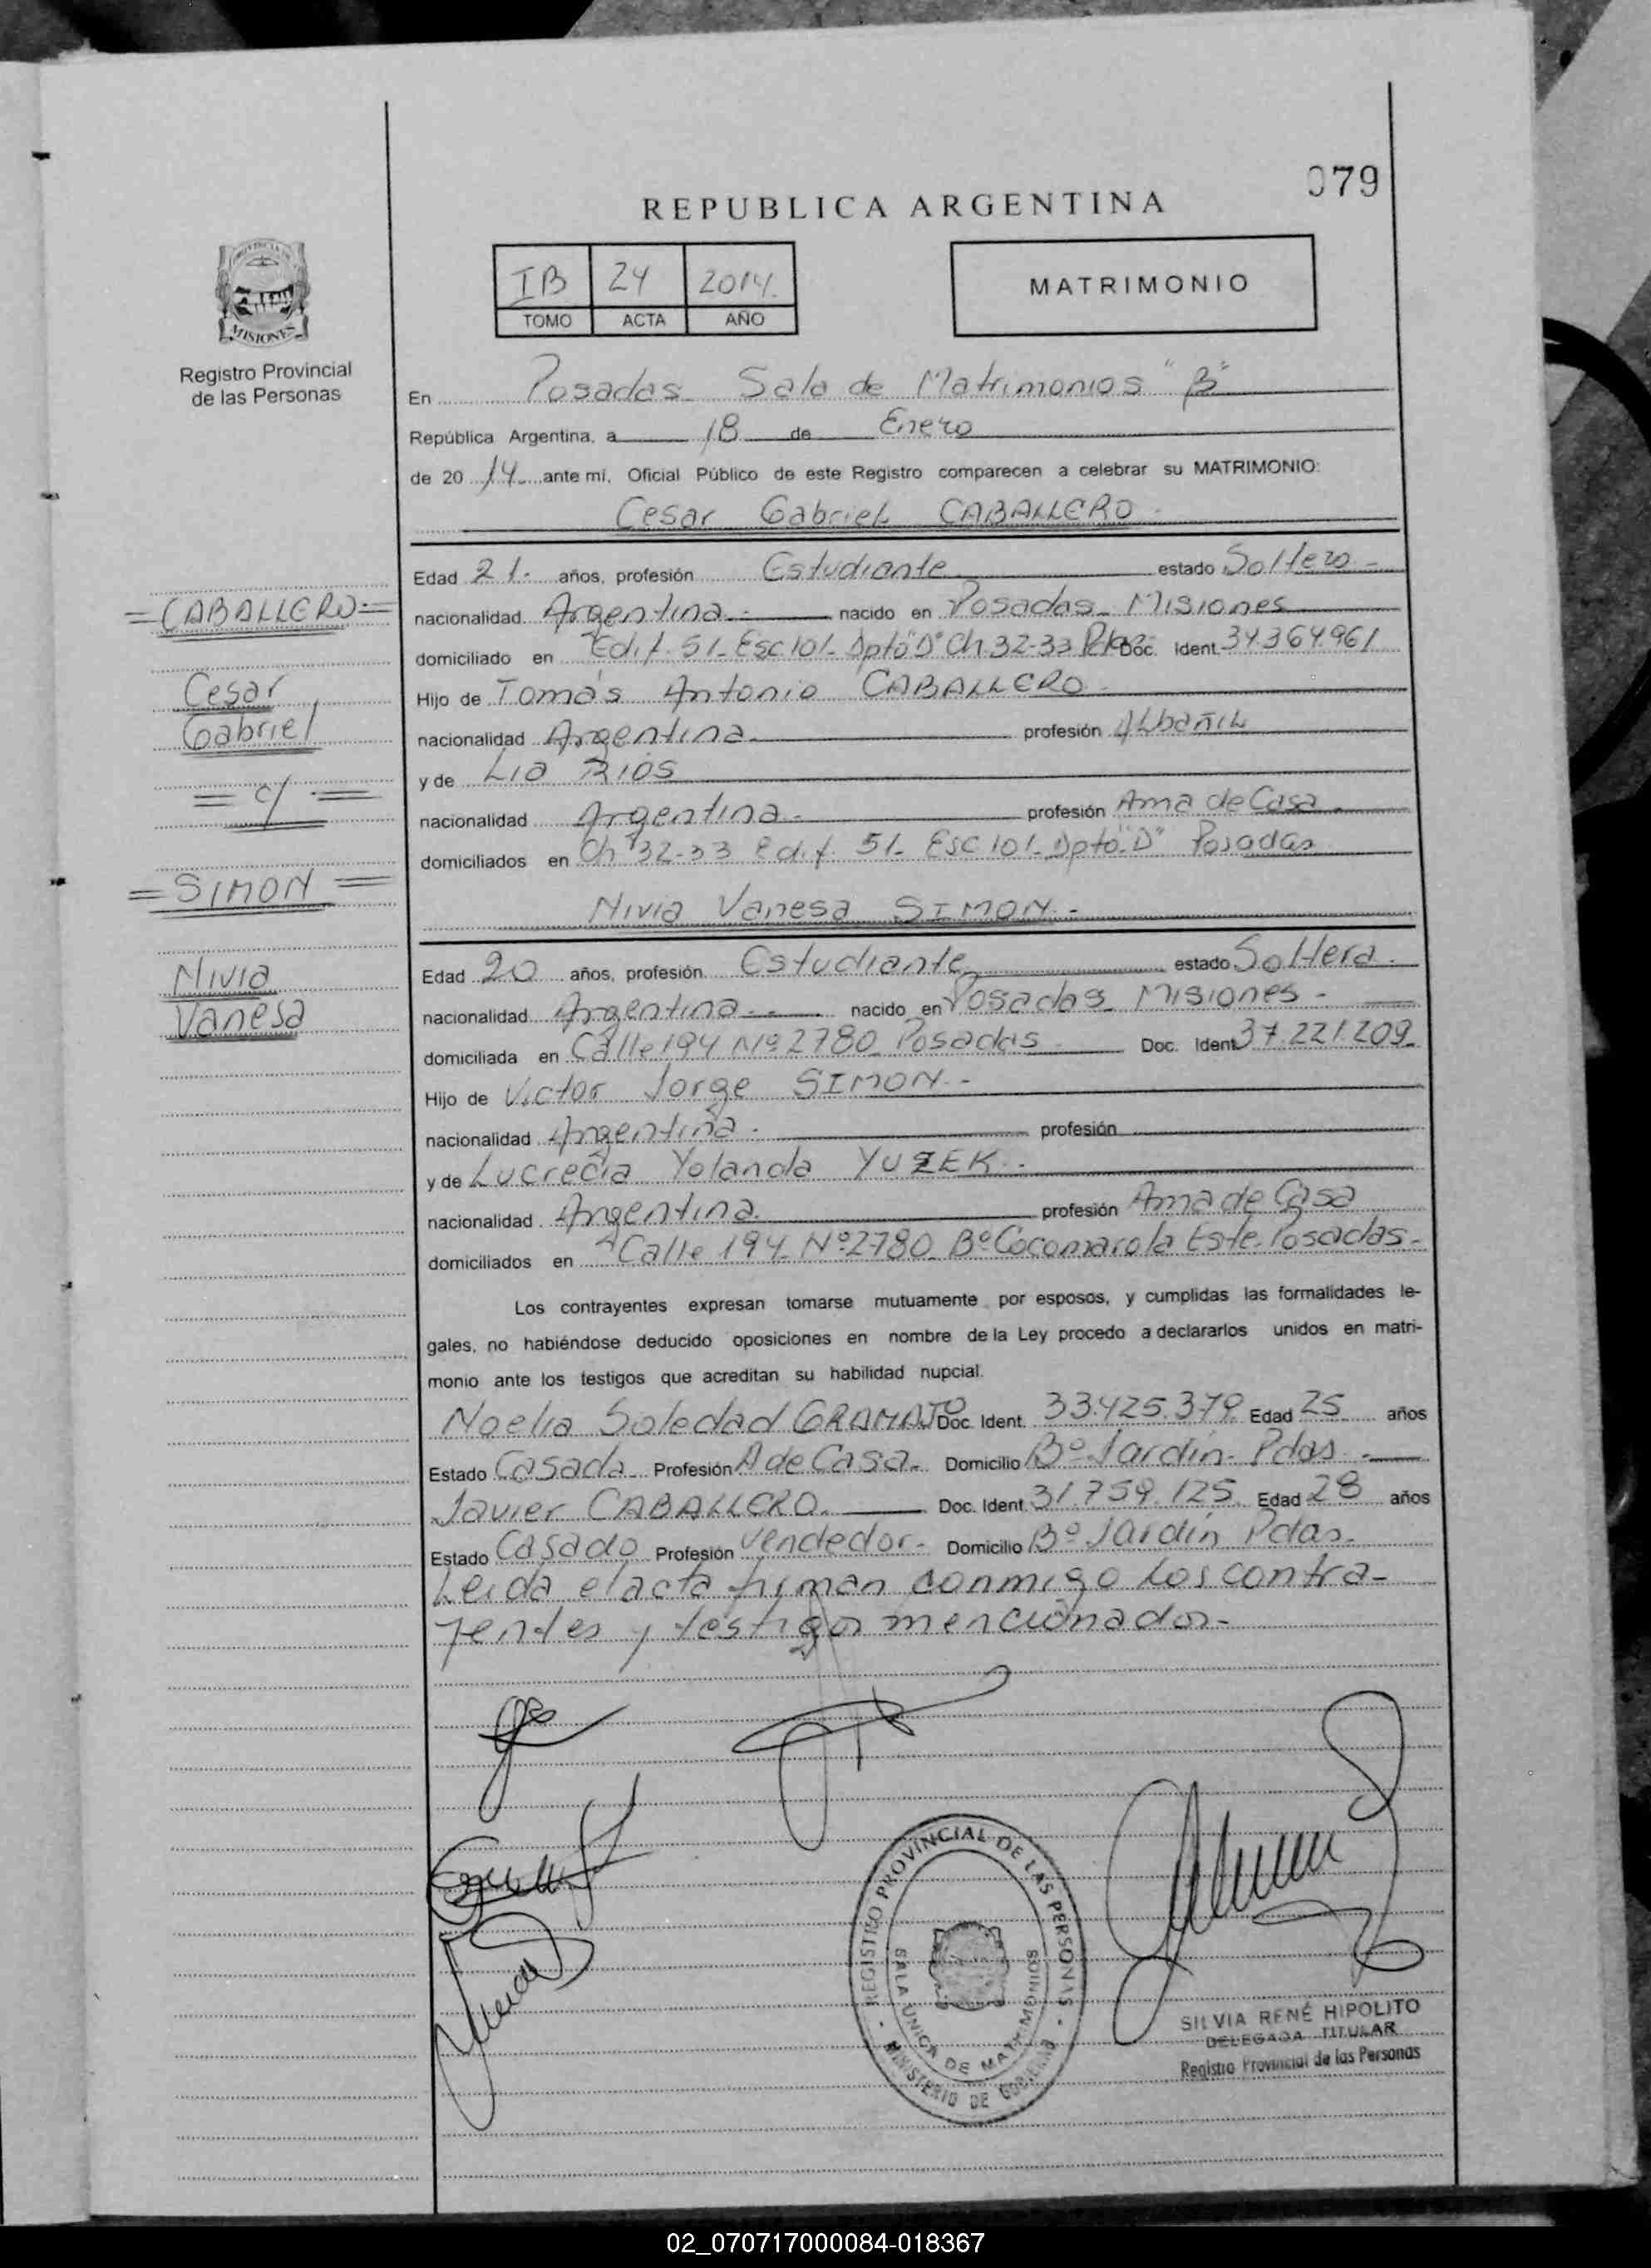 079
REPUBLICA ARGENTINA
IB 24 2014.
TOMO ACTA AÑO
MATRIMONIO
MISIONES
Registro Provincial
de las Personas
En Posadas Sala de Matrimonios "B"
República Argentina, a 18 de Enero
de 20 14 ante mi, Oficial Público de este Registro comparecen a celebrar su MATRIMONIO:
Cesar Gabriel CABALLERO
Edad 21 años, profesión Estudiante estado Soltero
nacionalidad Argentina nacido en Posadas Misiones
domiciliado en Edif. 51- Esc 101- Dpto "D" Ch. 32-33 Doc. Ident. 34.364.961
Hijo de Tomás Antonio CABALLERO
nacionalidad Argentina profesión Albañil
y de Lia RIOS
nacionalidad Argentina profesión Ama de Casa
domiciliados en Ch 32-33 Edif. 51- Esc 101- Dpto "D" Posadas
Nivia Vanesa SIMON
Edad 20 años, profesión Estudiante estado Soltera
nacionalidad Argentina nacido en Posadas Misiones
domiciliada en Calle 194 Nº 2780 Posadas Doc. Ident 37.221.209
Hijo de Victor Jorge SIMON
nacionalidad Argentina profesión
y de Lucrecia Yolanda YUZEK
nacionalidad Argentina profesión Ama de Casa
domiciliados en Calle 194 Nº 2780 Bº Cocomarola Este Posadas
Los contrayentes expresan tomarse mutuamente por esposos, y cumplidas las formalidades le-
gales, no habiéndose deducido oposiciones en nombre de la Ley procedo a declararlos unidos en matri-
monio ante los testigos que acreditan su habilidad nupcial.
Noelia Soledad GRAMAJO Doc. Ident. 33.425.379 Edad 25 años
Estado Casada Profesión A de Casa Domicilio Bº Jardín Pdas
Javier CABALLERO Doc. Ident. 31.759.125 Edad 28 años
Estado Casado Profesión Vendedor Domicilio Bº Jardín Pdas
Leida el acta firman conmigo los contra-
yentes y testigos mencionados
=CABALLERO=
Cesar
Gabriel
= c/ =
=SIMON=
Nivia
Vanesa
REGISTRO PROVINCIAL DE LAS PERSONAS
SALA UNICA DE MATRIMONIOS
MINISTERIO DE GOBIERNO
SILVIA RENÉ HIPOLITO
DELEGADA TITULAR
Registro Provincial de las Personas
02_070717000084-018367